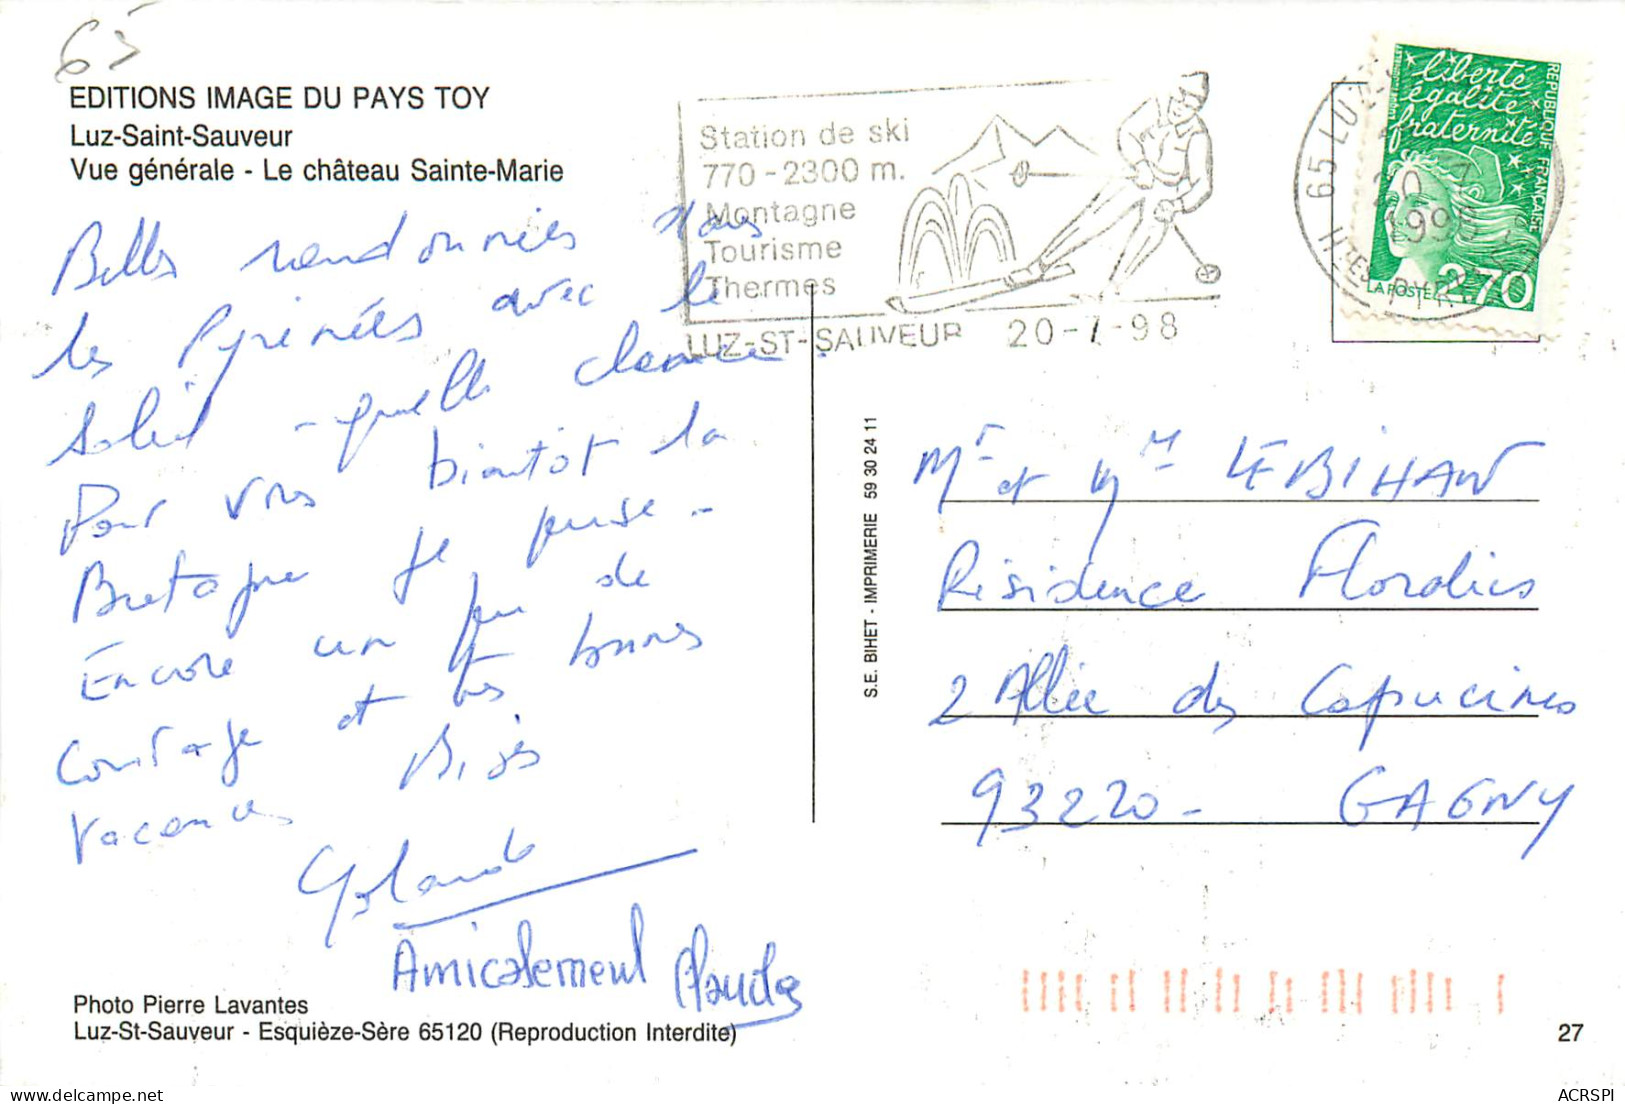 65
EDITIONS IMAGE DU PAYS TOY
Luz-Saint-Sauveur
Vue générale - Le château Sainte-Marie
Belles randonnées dans
les Pyrénées avec le
Soleil - quelle chance.
Pour vous bientôt la
Bretagne je pense -
Encore un peu de
Courage et tes bonnes
Vacances Bises
Yolande
Amicalement Claude
Photo Pierre Lavantes
Luz-St-Sauveur - Esquièze-Sère 65120 (Reproduction Interdite)
S.E. BIHET - IMPRIMERIE 59 30 24 11
Station de ski
770-2300 m.
Montagne
Tourisme
Thermes
LUZ-ST-SAUVEUR 20-7-98
65 LUZ
liberté
égalité
fraternité
RÉPUBLIQUE FRANÇAISE
LA POSTE 2,70
Mr et Mme LE BIHAN
Résidence Floralies
2 Allée des Capucines
93220 - GAGNY
27
ACRSPI